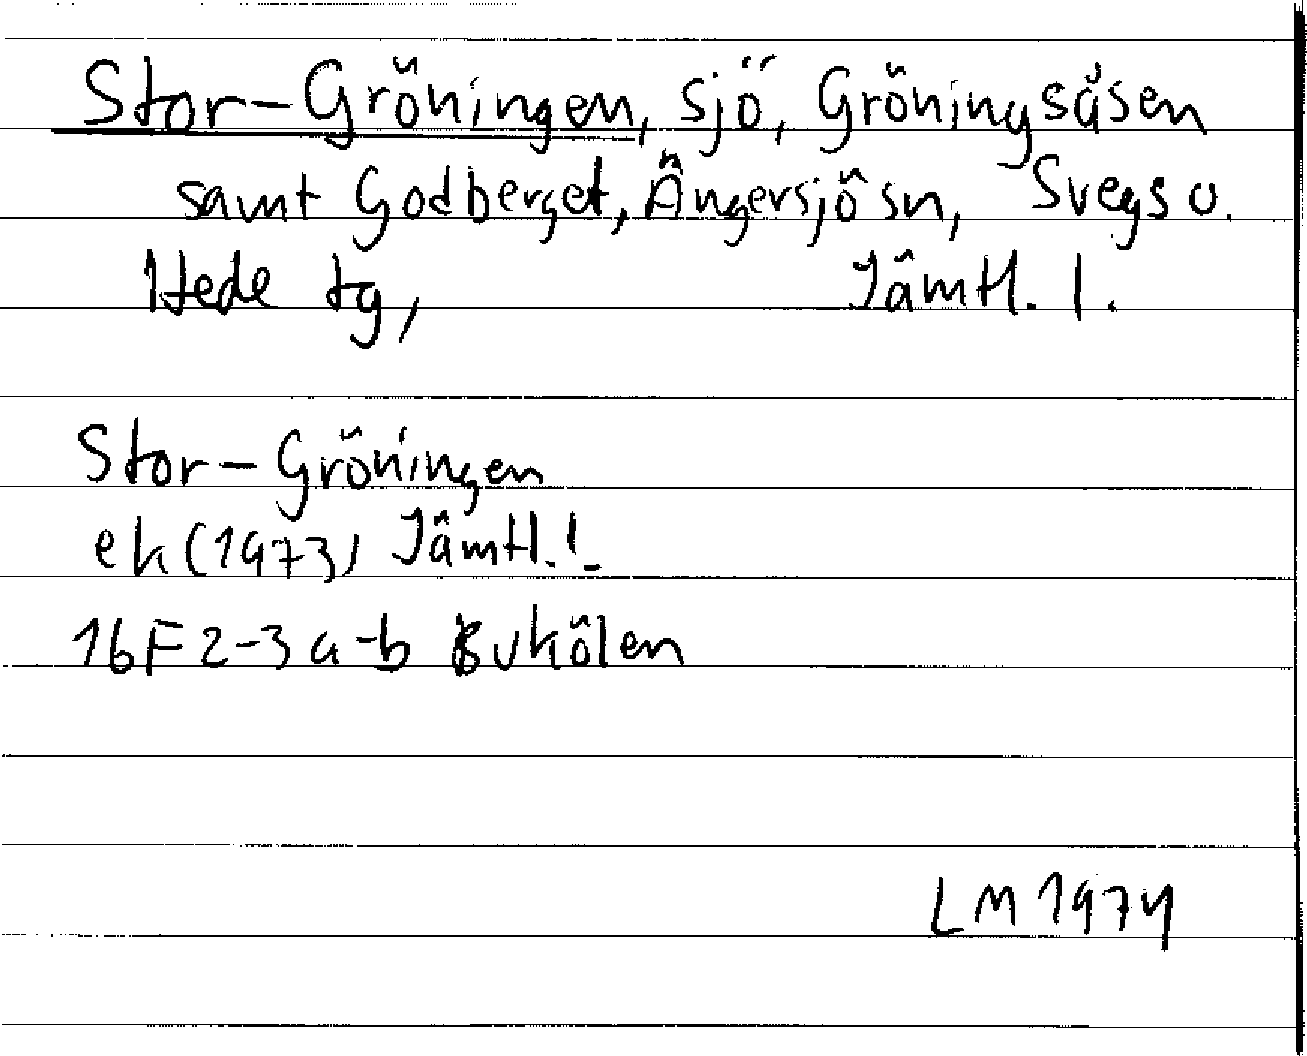 Stor-Gröningen, sjö, Gröningsåsen
samt Godberget, Ängersjö sn, Svegs o.
Hede tg, Jämtl. l.
Stor-Gröningen
ek (1973) Jämtl. l.
16F 2-3 a-b Bukölen
LM 1974